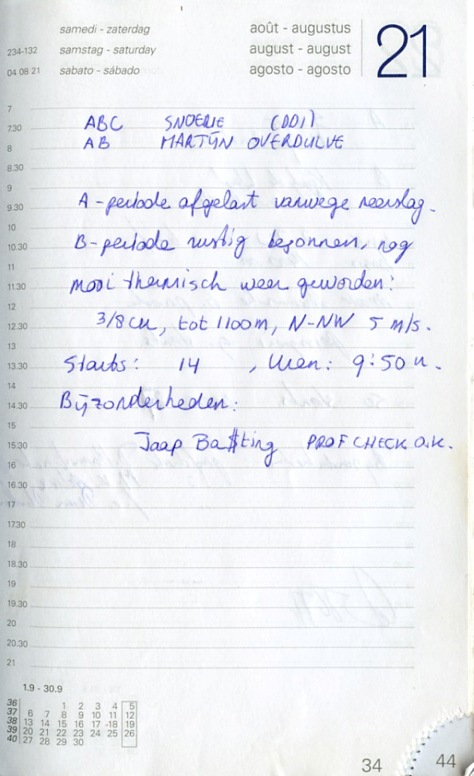 samedi - zaterdag
samstag - saturday
sabato - sábado
234-132
04 08 21
août - augustus
august - august
agosto - agosto
21
7
7.30
8
8.30
9
9.30
10
10.30
11
11.30
12
12.30
13
13.30
14
14.30
15
15.30
16
16.30
17
17.30
18
18.30
19
19.30
20
20.30
21
ABC SNOERIE (DDI)
AB MARTIJN OVERDULVE
A-periode afgelast vanwege neerslag.
B-periode rustig begonnen, nog
mooi thermisch weer geworden:
3/8 cu, tot 1100m, N-NW 5 m/s.
Starts: 14, Uren: 9:50 u.
Bijzonderheden:
Jaap Ba$ting PROFCHECK O.K.
1.9 - 30.9
36 1 2 3 4 5
37 6 7 8 9 10 11 12
38 13 14 15 16 17 18 19
39 20 21 22 23 24 25 26
40 27 28 29 30
34
44